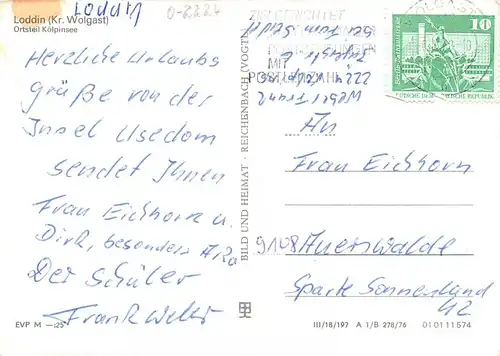 Loddin
0-2224
Loddin (Kr. Wolgast)
Ortsteil Kölpinsee
Herzliche Urlaubs
grüße von der
Insel Usedom
sendet Ihnen
Frau Eichhorn u.
Dirk, besonders
Der Schüler
Frank
EVP M —,25
BILD UND HEIMAT · REICHENBACH (VOGTL)
MIT
POSTLEITZAHL
10
DEUTSCHE DEMOKRATISCHE REPUBLIK
An
Frau Eichhorn
9108 Auerswalde
Sparte Sonnenland
42
III/18/197 A 1/B 278/76 010111574